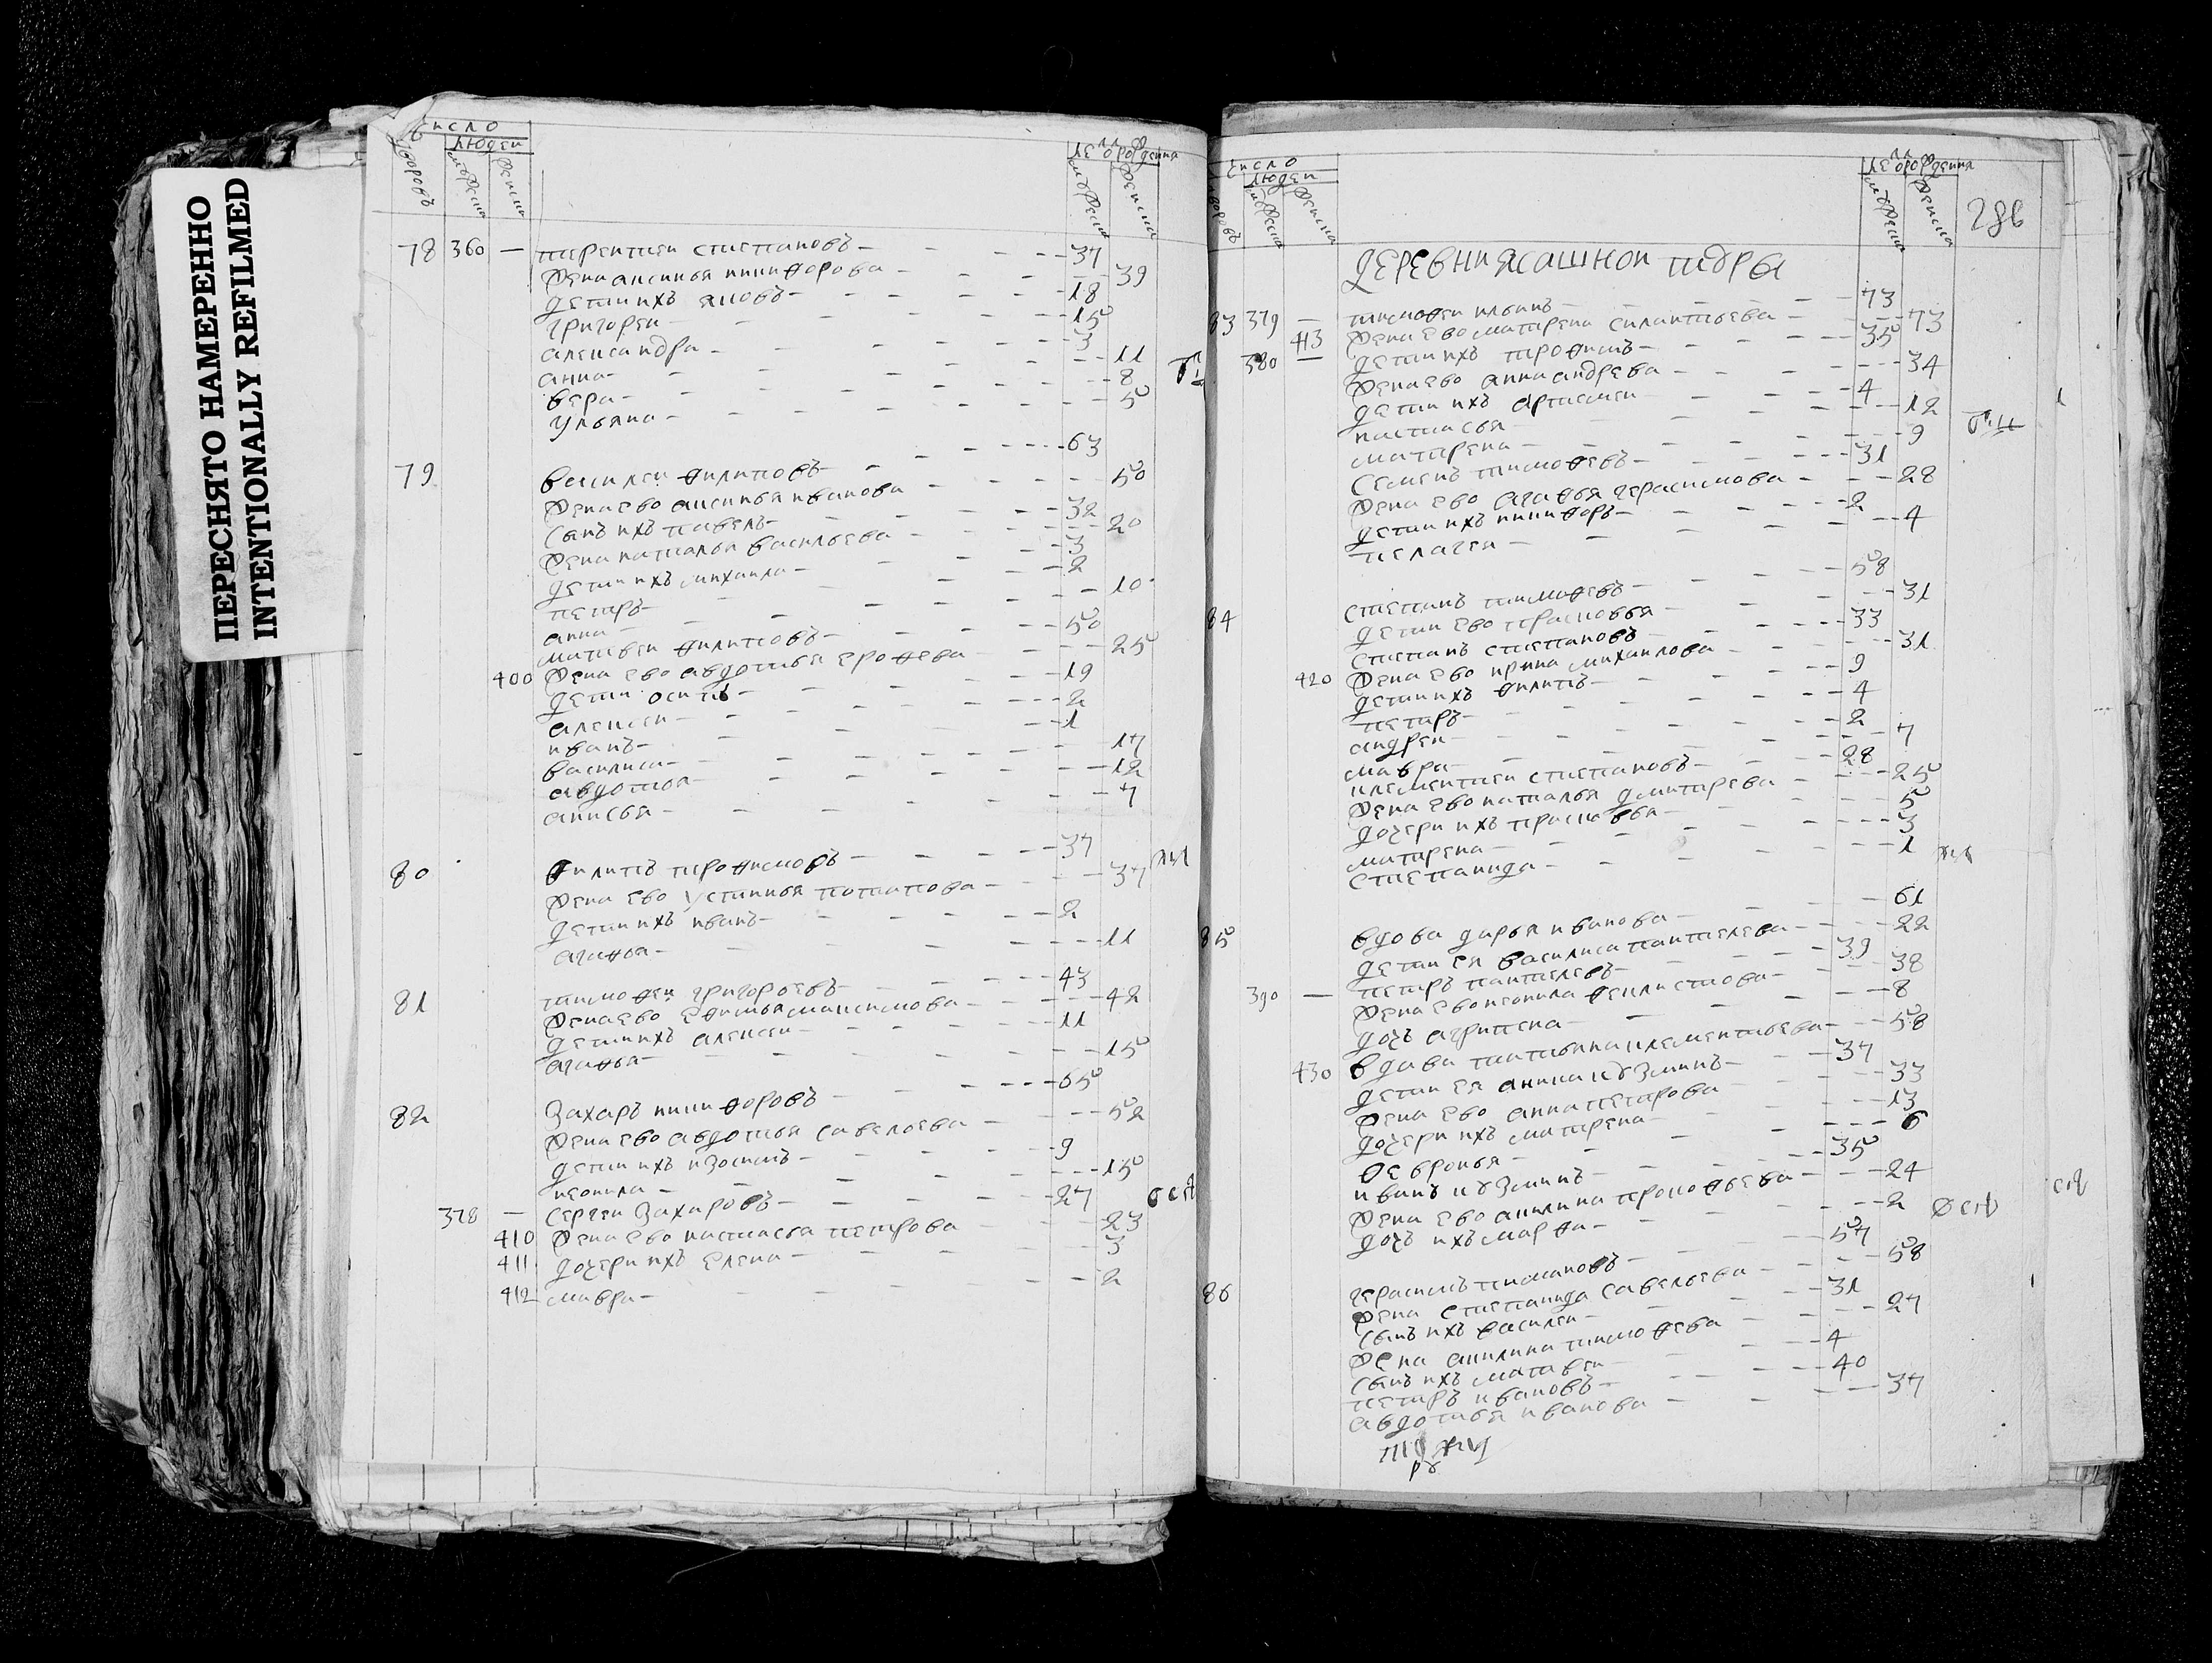 ПЕРЕСНЯТО НАМЕРЕННО
INTENTIONALLY REFILMED
число
людей
дворовъ
мужеска
женска
лѣ от рождения
мужеска
женска
78 360 — терентей степановъ — 37
жена аксинья никифорова — 39
дети ихъ яковъ — 18
григорей — 15
александра — 3
анна — 11
вера — 8
ульяна — 5
79 василей филиповъ — 63
жена ево аксинья иванова — 50
сынъ ихъ павелъ — 32
жена наталья васильева — 20
дети ихъ михаила — 3
петръ — 2
анна — 10
матвей филиповъ — 50
400 жена ево авдотья ерофева — 25
дети осипъ — 19
алексей — 2
иванъ — 1
василиса — 17
авдотья — 12
анисья — 7
80 филипъ трофимовъ — 37
жена ево устинья потапова — 37
дети ихъ иванъ — 2
агафья — 11
81 тимофей григорьевъ — 43
жена ево ефимья максимова — 42
дети ихъ алексей — 11
агафья — 15
82 захаръ никифоровъ — 65
жена ево авдотья савельева — 52
дети ихъ изосимъ — 9
неонила — 15
378 — сергей захаровъ — 27
410 жена ево настасья петрова — 23
411 дочери ихъ елена — 3
412 мавра — 2
число
людей
дворовъ
мужеска
женска
лѣ от рождения
мужеска
женска
286
деревни ясашной тюдры
83 379 — тимофей ильинъ — 73
413 жена ево матрена силантьева — 73
380 — дети ихъ трофимъ — 35
жена ево анна андрева — 34
дети ихъ артемей — 4
настасья — 12
матрена — 9
семенъ тимофевъ — 31
жена ево агафья герасимова — 28
дети ихъ никифоръ — 2
пелагея — 4
84 степанъ тимофевъ — 58
дети ево прасковья — 31
степанъ степановъ — 33
420 жена ево ирина михаилова — 31
дети ихъ филипъ — 9
петръ — 4
андрей — 2
мавра — 7
клементей степановъ — 28
жена ево наталья дмитрева — 25
дочери ихъ прасковья — 5
матрена — 3
степанида — 1
85 вдова дарья иванова — 61
дети ея василиса пантелева — 22
390 — петръ пантелевъ — 39
жена ево неонила феклистова — 38
дочь агрипена — 8
430 вдава татьянна клементьева — 58
дети ея аника кузминъ — 37
жена ево анна петрова — 33
дочери ихъ матрена — 13
февронья — 6
иванъ кузминъ — 35
жена ево акилина прокофьева — 24
дочь ихъ марфа — 2
86 герасимъ тимановъ — 57
жена степанида савельева — 58
сынъ ихъ василей — 31
жена акилина тимофева — 27
сынъ ихъ матвей — 4
петръ ивановъ — 40
авдотья иванова — 37